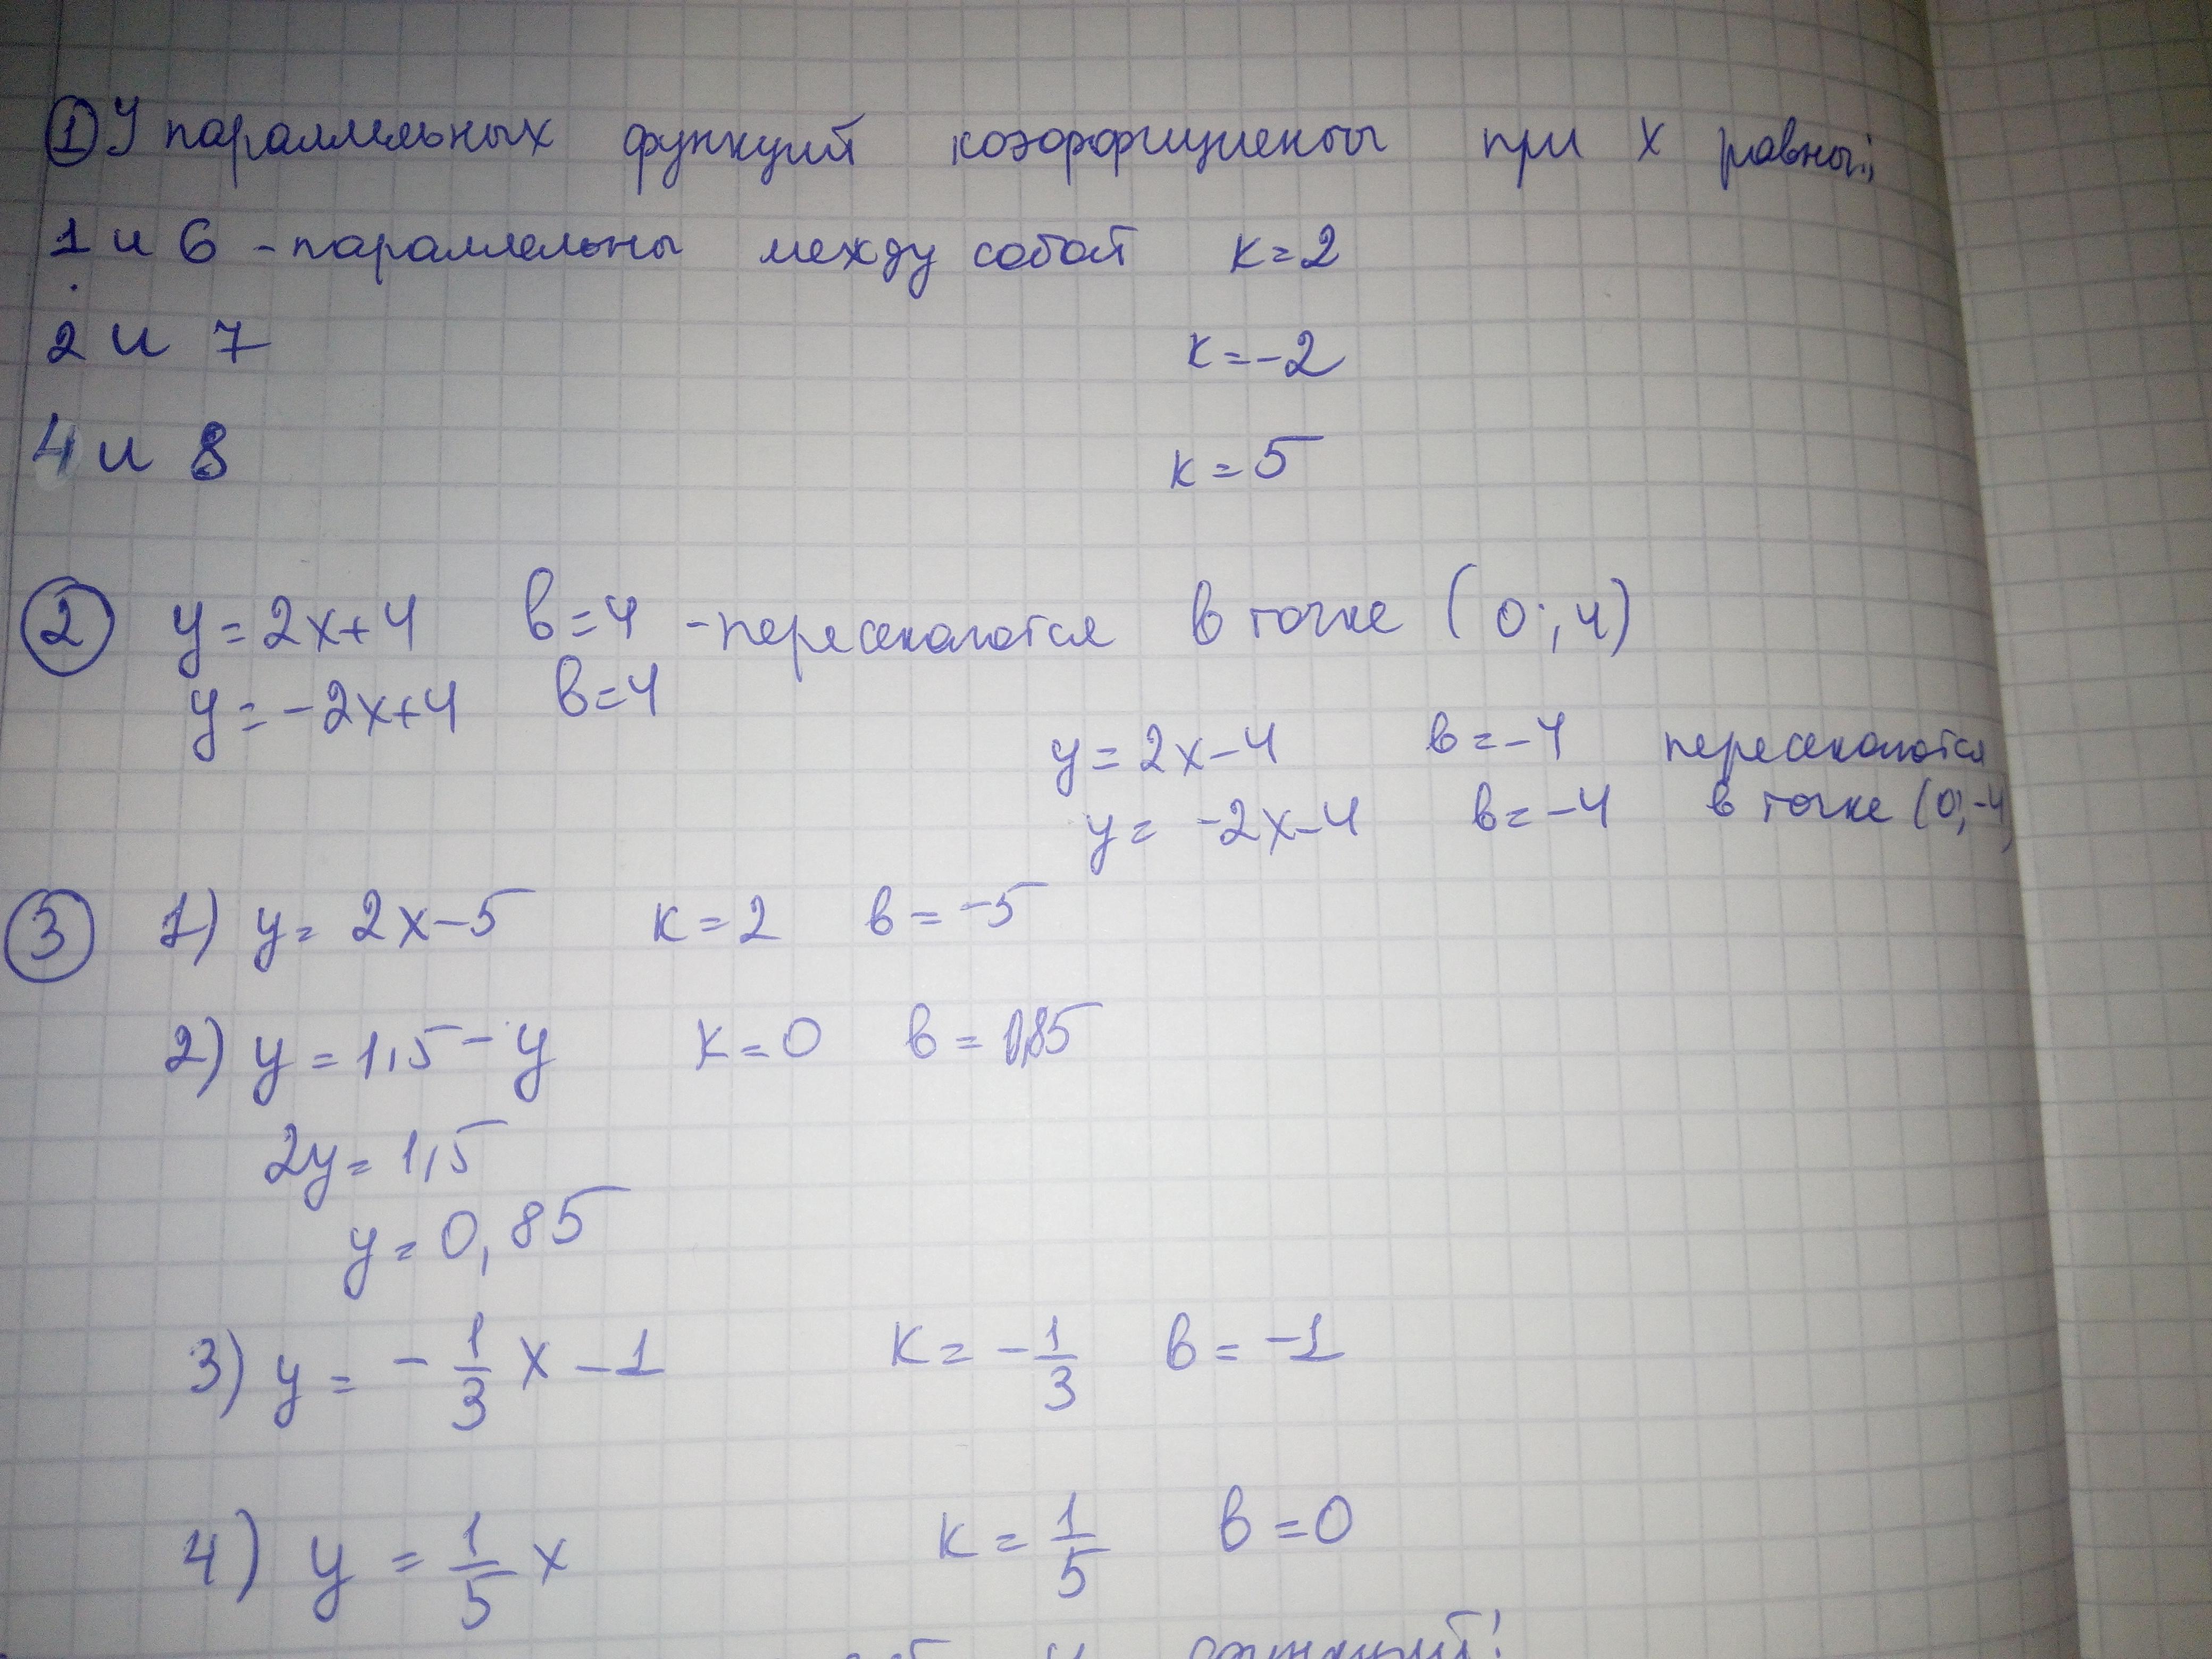 ① У параллельных функций коэффициенты при х равны:
1 и 6 - параллельны между собой к=2
2 и 7 к=-2
4 и 8 к=5
② у=2х+4 в=4 -пересекаются в точке (0;4)
у=-2х+4 в=4
у=2х-4 в=-4 пересекаются
у= -2х-4 в=-4 в точке (0;-4)
③ 1) у= 2х-5 к=2 в=-5
2) у=1,5-у к=0 в=0,85
2у=1,5
у=0,85
3) у = -1/3 х -1 к= -1/3 в= -1
4) у = 1/5 х к= 1/5 в=0
и